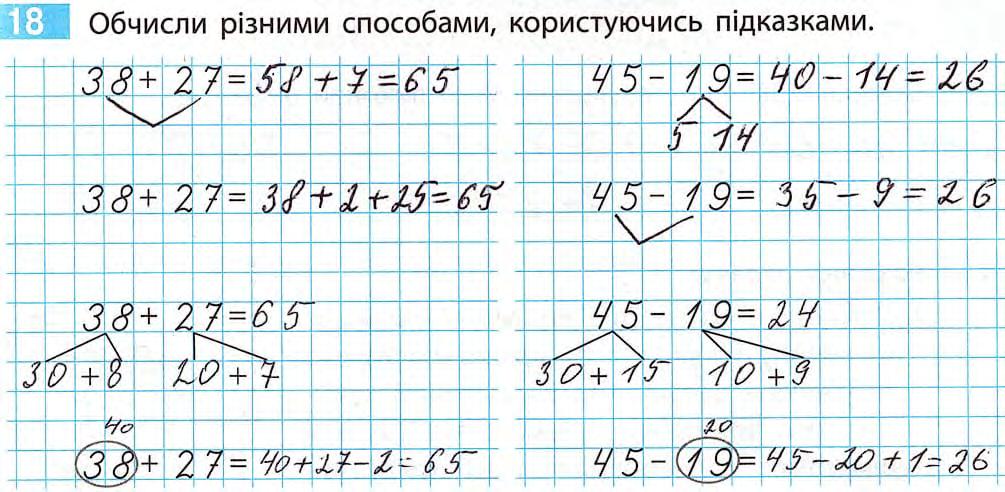 18 Обчисли різними способами, користуючись підказками.
38 + 27 = 58 + 7 = 65
38 + 27 = 38 + 2 + 25 = 65
38 + 27 = 65
30 + 8 20 + 7
40
38 + 27 = 40 + 27 - 2 = 65
45 - 19 = 40 - 14 = 26
5 14
45 - 19 = 35 - 9 = 26
45 - 19 = 24
30 + 15 10 + 9
20
45 - 19 = 45 - 20 + 1 = 26